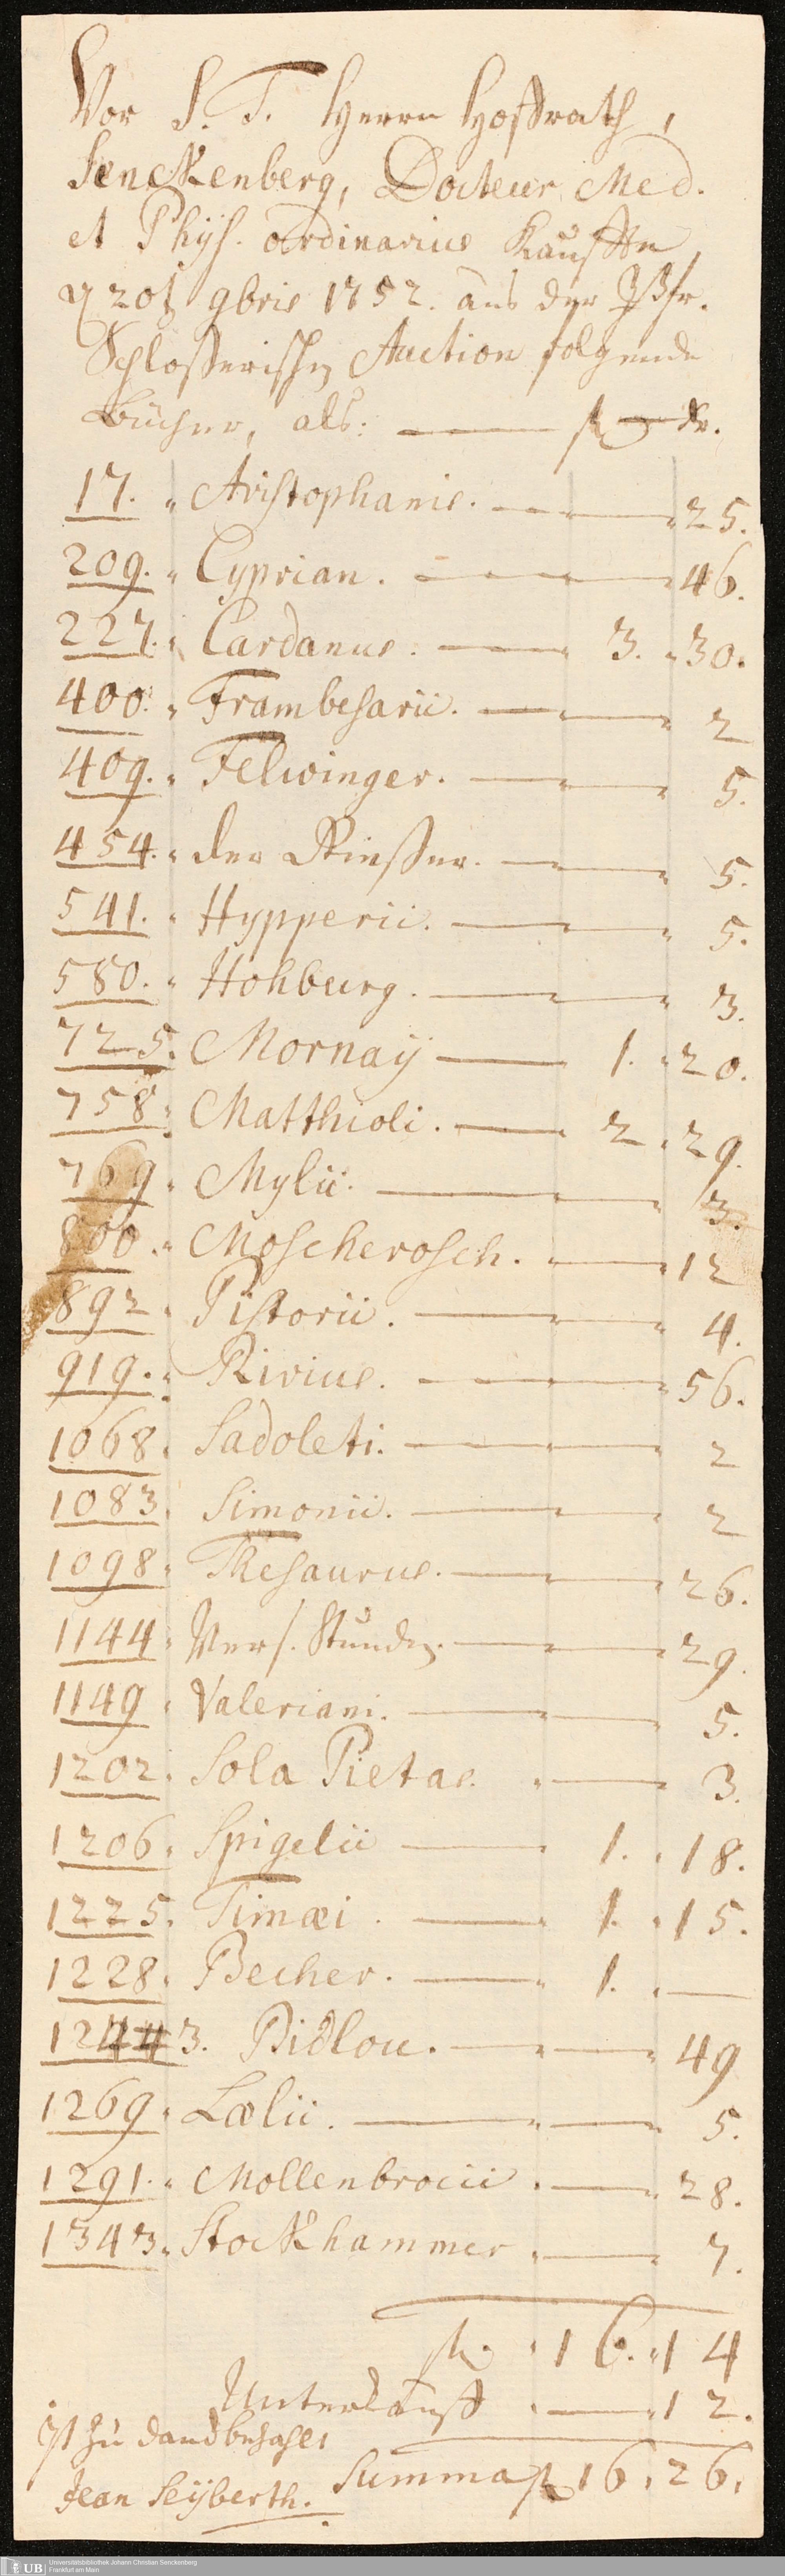 Vor S. T. Herrn Hoffrath,
Senckenberg, Docteur Med.
et Phÿs. ordinarius Kauffte
d 20t 9bris 1752. aus der Pfr.
Schloßerischen Auction folgende
Bücher, als: — fl — Xr.
17. " Aristophanis. — 25.
209. " Cyprian. — 46.
227. " Cardanus. — 3. " 30.
400. " Frambesarii. — 2
409. " Felwinger. — 5.
454. " der — 5.
541. " Hypperii. — 5.
580. " Hohburg. — 3.
725. Mornaÿ — 1. " 20.
758. Matthioli. — 2 " 29.
769. " Mylii. — 3.
800. " Moscherosch. — 12
892. Pistorii. — 4.
919. " Rivius. — 56.
1068. Sadoleti. — 2
1083. Simonii. — 2
1098. Thesaurus. — 26.
1144. Vers. Stunden. — 29.
1149 " Valeriani. — 5.
1202. Sola Pietas. — 3.
1206. Spigelii — 1. " 18.
1225. Timæi. — 1. " 15.
1228. Becher. — 1. " —
12443. Bidlou. — 49
1269. Lælii. — 5.
1291. " Mollenbrocii. — 28.
1343. " Stockhammer. — 7.
fl. " 16. " 14
Unterkauff. — 12.
ist zu danck bezahlt
Jean Seÿberth. Summa fl 16. 26.
UB Universitätsbibliothek Johann Christian Senckenberg
Frankfurt am Main